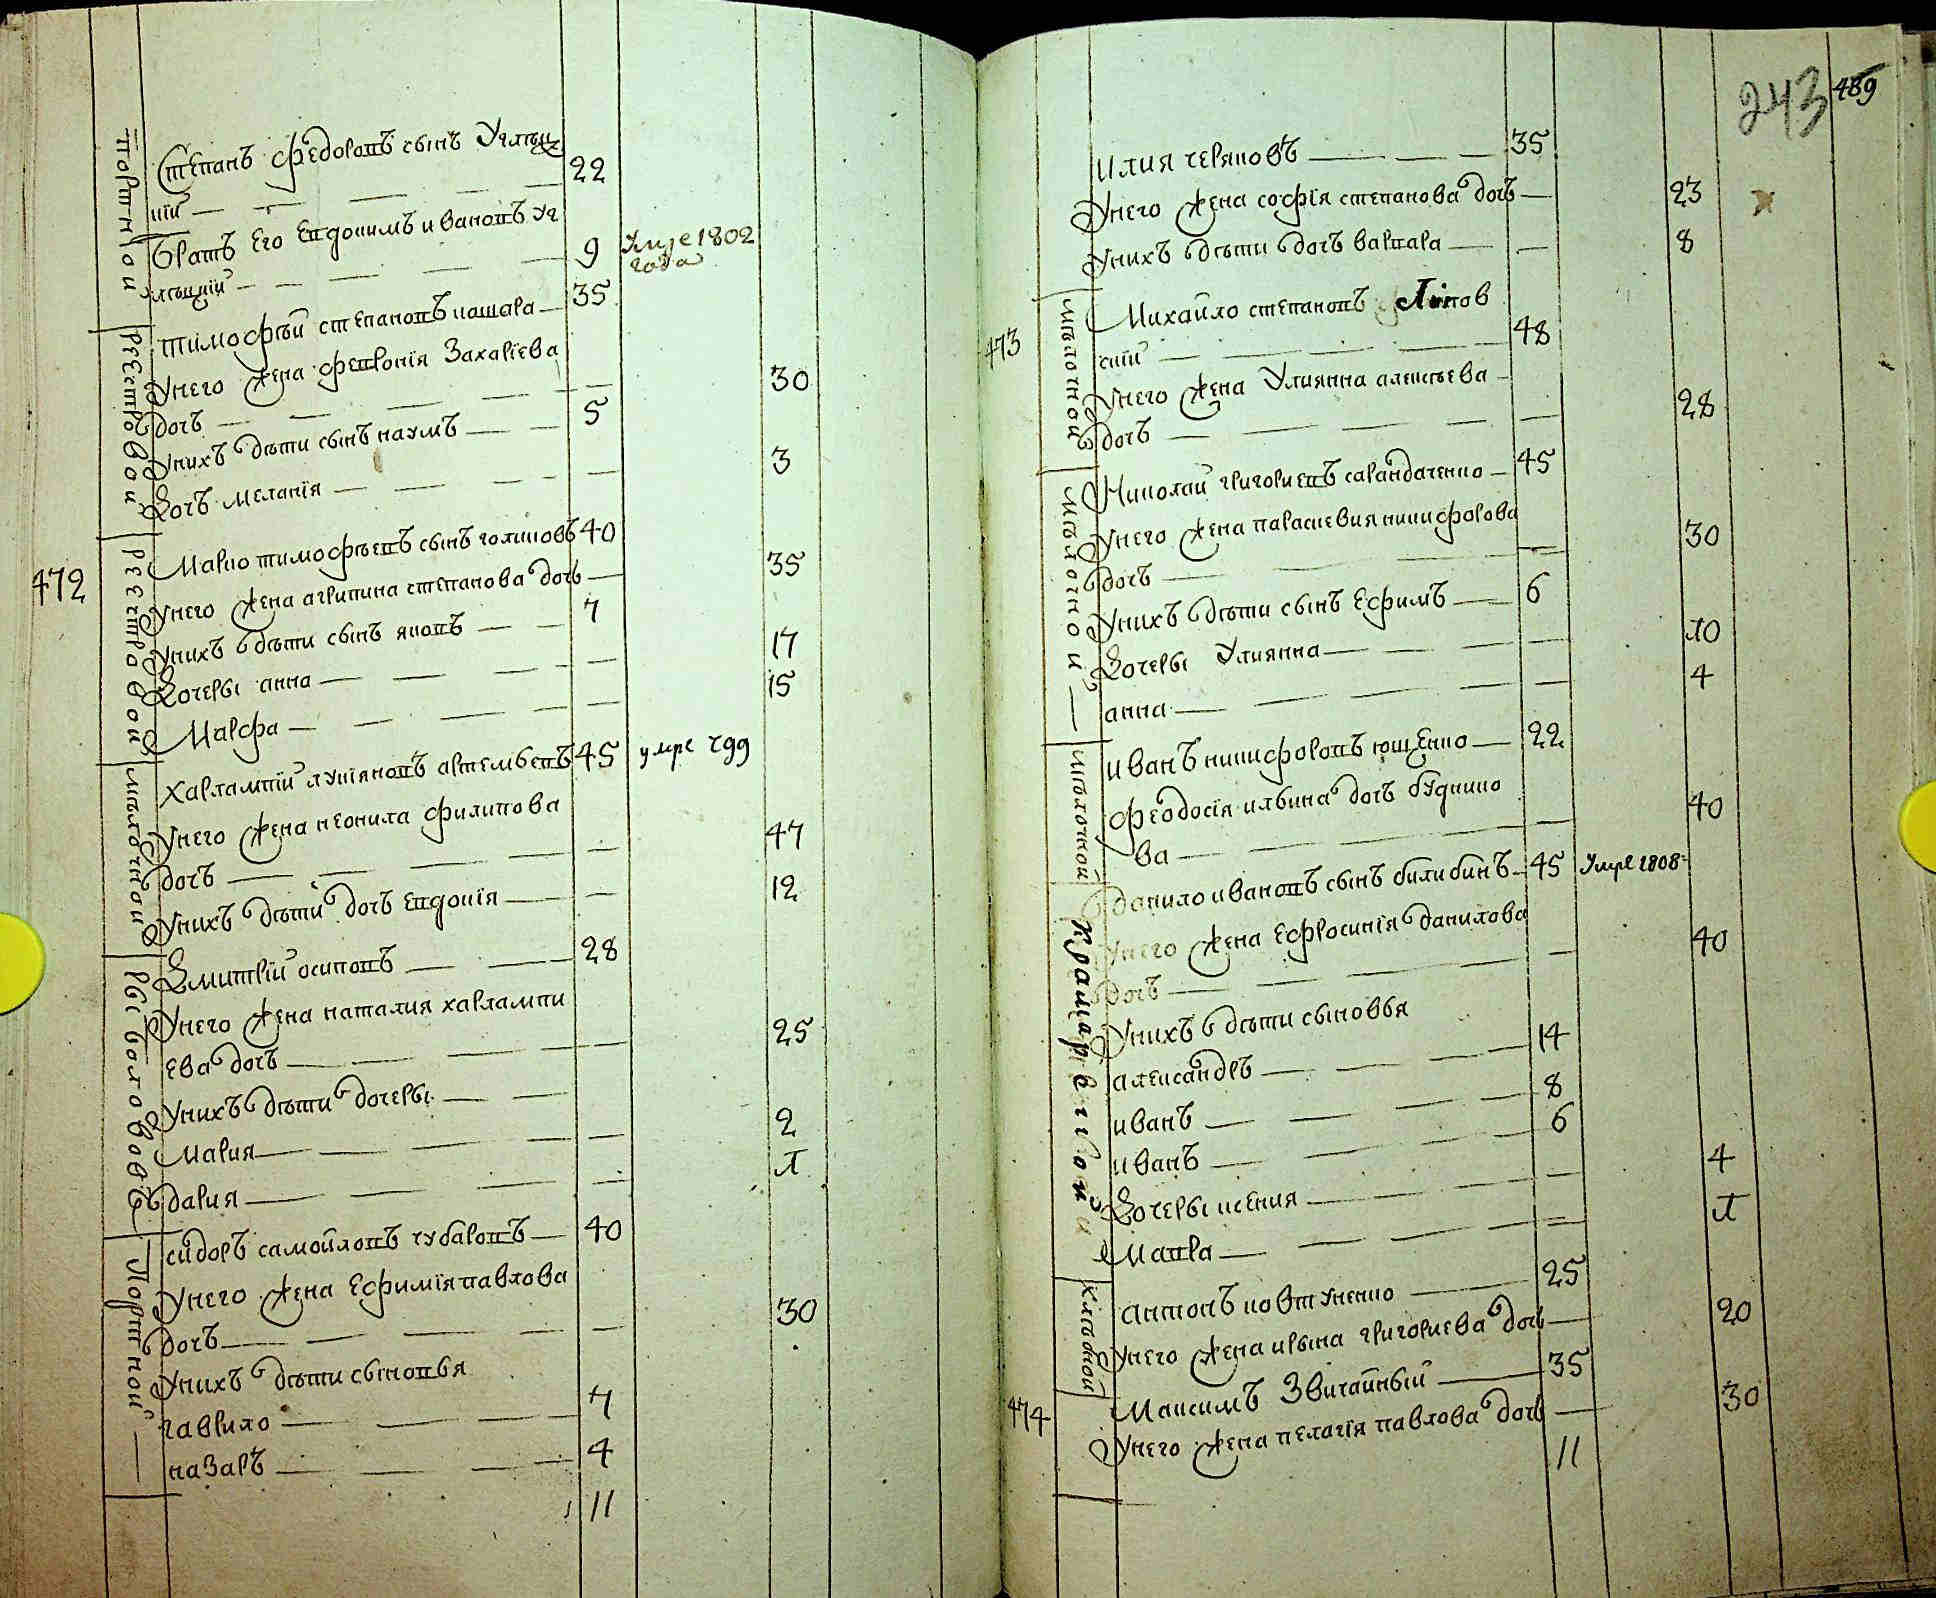 портной
Степанъ федоровъ сынъ Углиц
кїй — 22
братъ его Евдокимъ ивановъ уг
лицкїй — 9 Умре 1802
года
реестровой
тимофѣй степановъ кашара — 35
Унего жена февронія Захаріева
дочь — 30
Унихъ дѣти сынъ наумъ — 5
Дочь меланія — 3
472
реестровой
Марко тимофѣевъ сынъ голиковъ 40
Унего жена агрипина степанова дочь — 35
Унихъ дѣти сынъ яковъ — 7
Дочеры анна — 17
Марфа — 15
шполочной
харлампій лукіяновъ артемьевъ 45 умре 799
Унего жена неонила филипова
дочь — 47
Унихъ дѣти дочь Евдокія — 12
рыболововъ
Дмитрій осиповъ — 28
Унего жена наталия харлампи
ева дочь — 25
Унихъ дѣти дочеры
Мария — 2
дария — л
Портной
сидоръ самойловъ чубаровъ — 40
Унего жена Ефимія павлова
дочь — 30
Унихъ дѣти сыновья
гаврило — 7
назаръ — 4
11
243 489
илия черяковъ — 35
Унего жена софія степанова дочь — 23
Унихъ дѣти дочь варвара — 8
473
Михайло степановъ
скій — 48
Унего жена Улиянна алексѣева
дочь — 28
Николай григориевъ саранdаченко — 45
Унего жена параскевия никифорова
дочь — 30
Унихъ дѣти сынъ Ефимъ — 6
Дочеры Улиянна — 10
анна — 4
иванъ никифоровъ ющенко — 22
феодосія ильина дочь будник
ва — 40
Крамаревой
данило ивановъ сынъ билибинъ — 45 Умре 1808
Унего жена Ефросинія данилова
дочь — 40
Унихъ дѣти сыновья
александръ — 14
иванъ — 8
иванъ — 6
Дочеры ксения — 4
Мавра — л
антонъ ковтуненко — 25
Унего жена ирына григориева дочь — 20
474
Максимъ Звичайный — 35
Унего жена пелагія павлова дочь — 30
11